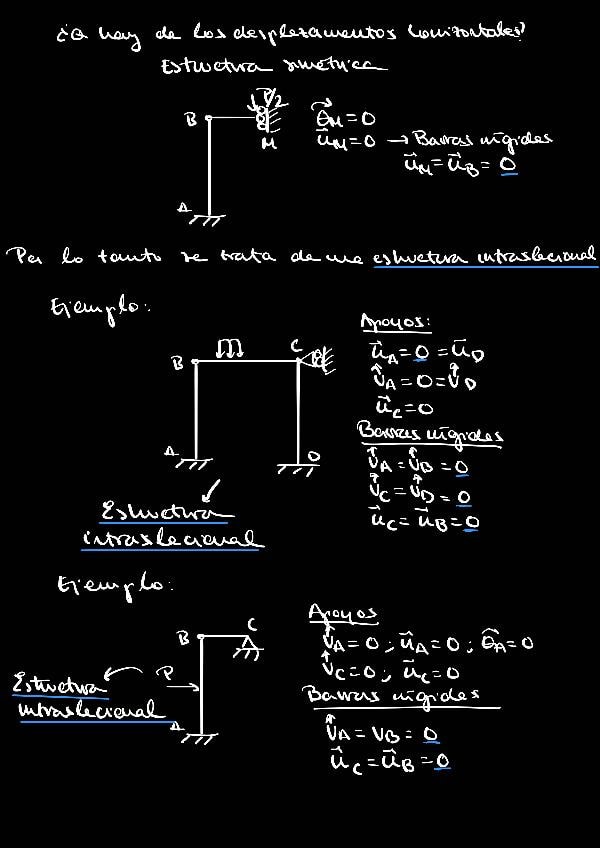 ¿Q hay de los desplazamientos horizontales?
Estructura simétrica
P/2
B
M
A
θM = 0
uM = 0 → Barras rígidas
uM = uB = 0
Por lo tanto se trata de una estructura intraslacional
Ejemplo:
B
C
A
D
Apoyos:
uA = 0 = uD
vA = 0 = vD
uC = 0
Barras rígidas
vA = vB = 0
vC = vD = 0
uC = uB = 0
Estructura
intraslacional
Ejemplo:
B
C
P
A
Estructura
intraslacional
Apoyos
vA = 0 ; uA = 0 ; θA = 0
vC = 0 ; uC = 0
Barras rígidas
vA = vB = 0
uC = uB = 0